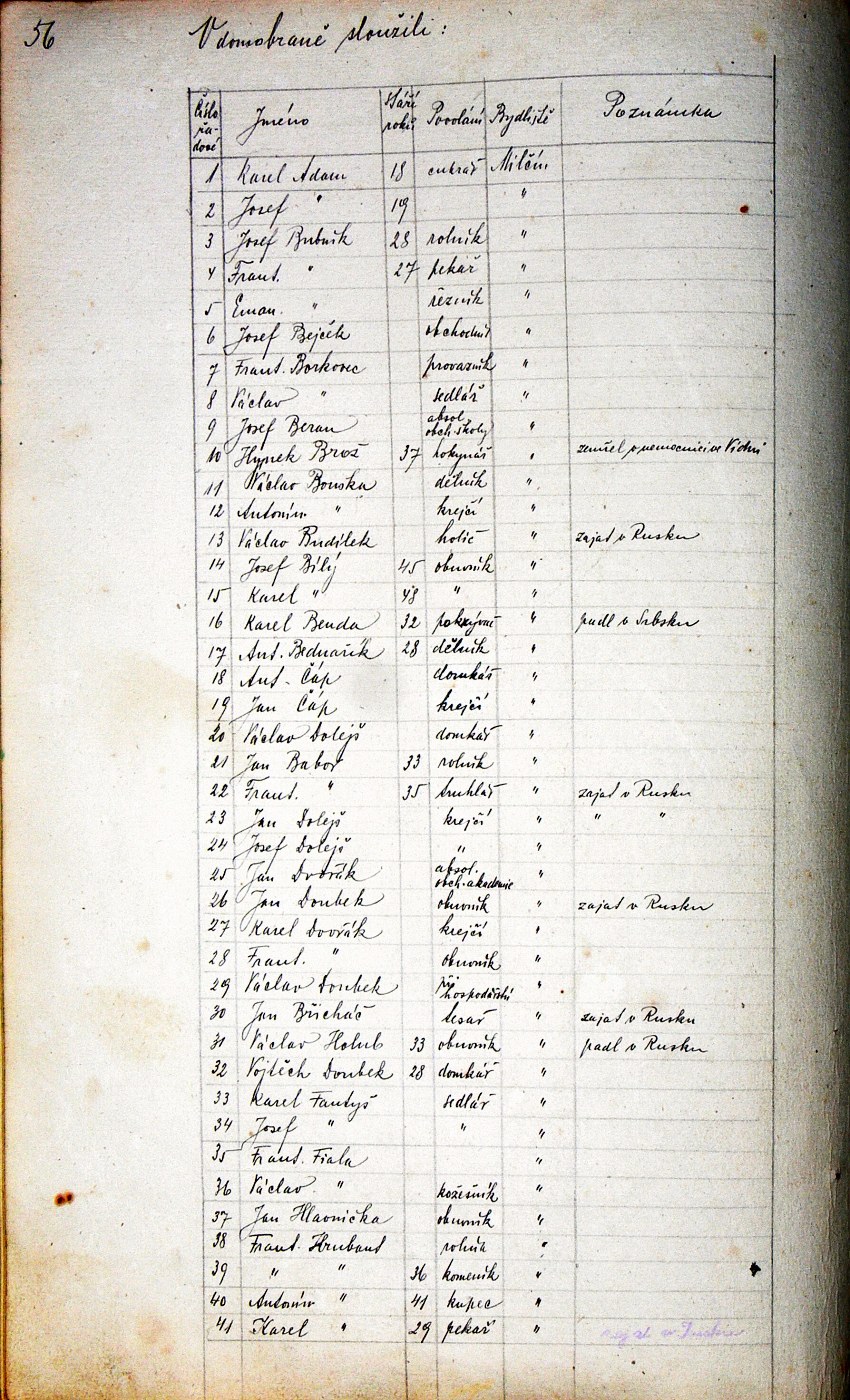 56
V domobraně sloužili:
Číslo řadové Jméno Stáří roků Povolání Bydliště Poznámka
1 Karel Adam 18 cukrář Milčín
2 Josef " 19 "
3 Josef Bubník 28 rolník "
4 Frant. " 27 pekař "
5 Eman. " řezník "
6 Josef Bejček obchodník "
7 Frant. Borkovec provazník "
8 Václav " sedlář "
9 Josef Beran absol. obch. školy "
10 Hynek Brož 37 hokynář " zemřel v nemocnici ve Vídni
11 Václav Bouska dělník "
12 Antonín " krejčí "
13 Václav Rudílek holič " zajat v Rusku
14 Josef Bílý 45 obuvník "
15 Karel " 48 " "
16 Karel Benda 32 pokrývač " padl v Srbsku
17 Ant. Bednařík 28 dělník "
18 Ant. Čáp domkář "
19 Jan Čáp krejčí "
20 Václav Dolejš domkář "
21 Jan Babor 33 rolník "
22 Frant. " 35 truhlář " zajat v Rusku
23 Jan Dolejš krejčí " " "
24 Josef Dolejš " "
25 Jan Dvořák absol. obch. akademie "
26 Jan Doubek obuvník " zajat v Rusku
27 Karel Dvořák krejčí "
28 Frant. " obuvník "
29 Václav Doubek při hospodářství "
30 Jan Břicháč tesař " zajat v Rusku
31 Václav Holub 33 obuvník " padl v Rusku
32 Vojtěch Doubek 28 domkář "
33 Karel Fantyš sedlář "
34 Josef " " "
35 Frant. Fiala "
36 Václav " kožešník "
37 Jan Hlavnička obuvník "
38 Frant. Hrubant "
39 " " 36 kameník "
40 Antonín " 41 kupec "
41 Karel " 29 pekař "